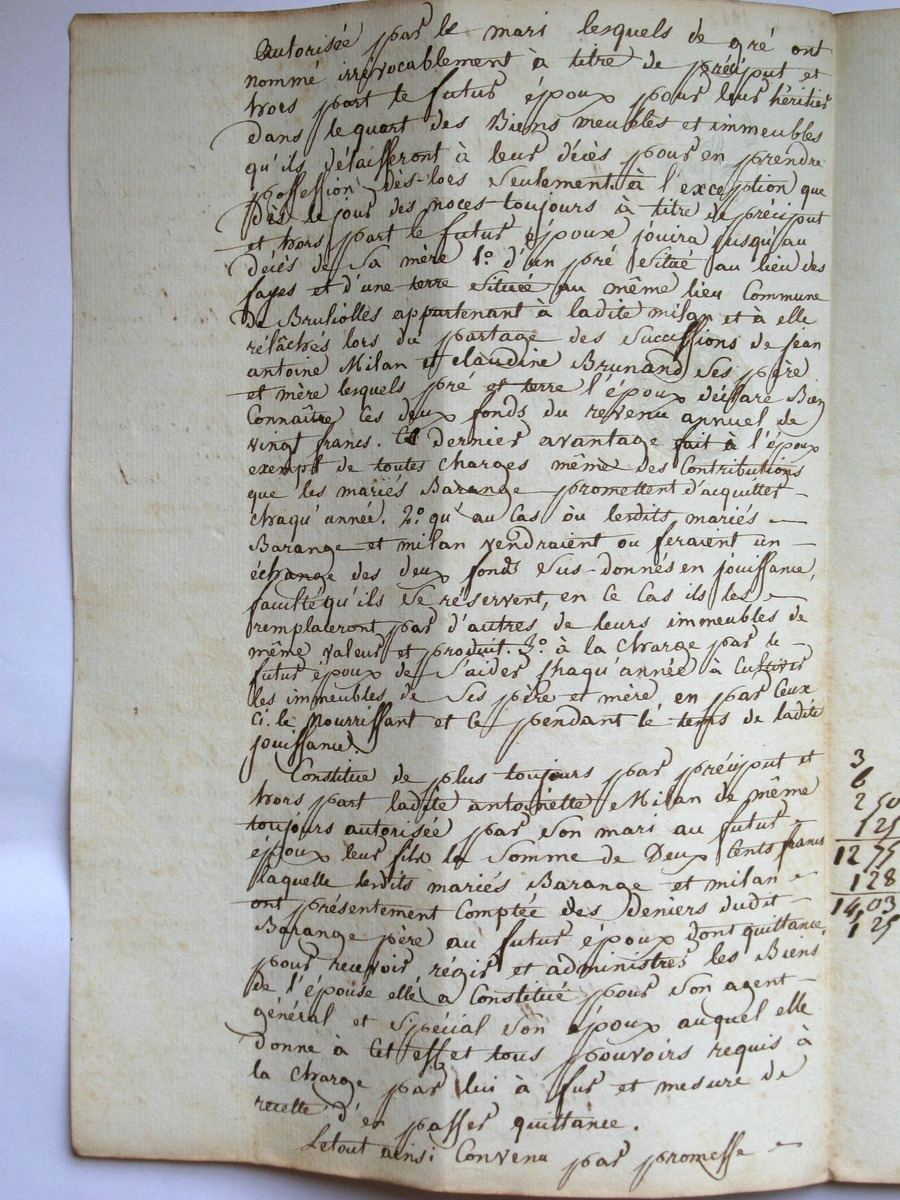 autorisée par le mari lesquels de gré ont
nommé irrévocablement à titre de préciput et
hors part le futur époux pour leur héritier
dans le quart des Biens meubles et immeubles
qu'ils délaisseront à leur décès pour en prendre
possession dès-lors seulement à l'exception que
dès le jour des noces toujours à titre de préciput
et hors part le futur époux jouira jusqu'au
décès de sa mère 1.o d'un pré situé au lieu des
fayes et d'une terre située au même lieu Commune
de Brulioles appartenant à ladite milan et à elle
relâchés lors du partage des successions de jean
antoine Milan et claudine Brunand ses père
et mère lesquels pré et terre l'époux déclare Bien
Connaître ces deux fonds du revenu annuel de
vingt francs. Ce dernier avantage fait à l'époux
exempt de toutes charges même des Contributions
que les mariés Barange promettent d'acquitter
chaqu'année. 2.o qu'au Cas où lesdits mariés
Barange et milan vendraient ou feraient un
échange des deux fonds sus-donnés en jouissance,
faculté qu'ils se réservent, en ce cas ils les
remplaceront par d'autres de leurs immeubles de
même valeur et produit. 3.o à la charge par le
futur époux de s'aider chaqu'année à Cultiver
les immeubles de ses père et mère en par Ceux
Ci le Nourrissant et ce pendant le tems de ladite
jouissance.
Constitue de plus toujours par préciput et
hors part ladite antoinette Milan de même
toujours autorisée par son mari au futur
epoux leur fils la somme de Deux Cents francs
laquelle lesdits mariés Barange et milan
ont présentement Comptée des Deniers dudit
Barange père au futur époux dont quittance.
pour recevoir, régir et administrer les Biens
de l'épouse elle a Constitué pour son agent
général et spécial son époux auquel elle
donne à cet effet tous pouvoirs requis à
la charge par lui à fur et mesure de
recette d'en passer quittance.
Le tout ainsi Convenu par promesse
3
6
2 50
1 25
12 75
1 28
14,03
1 25